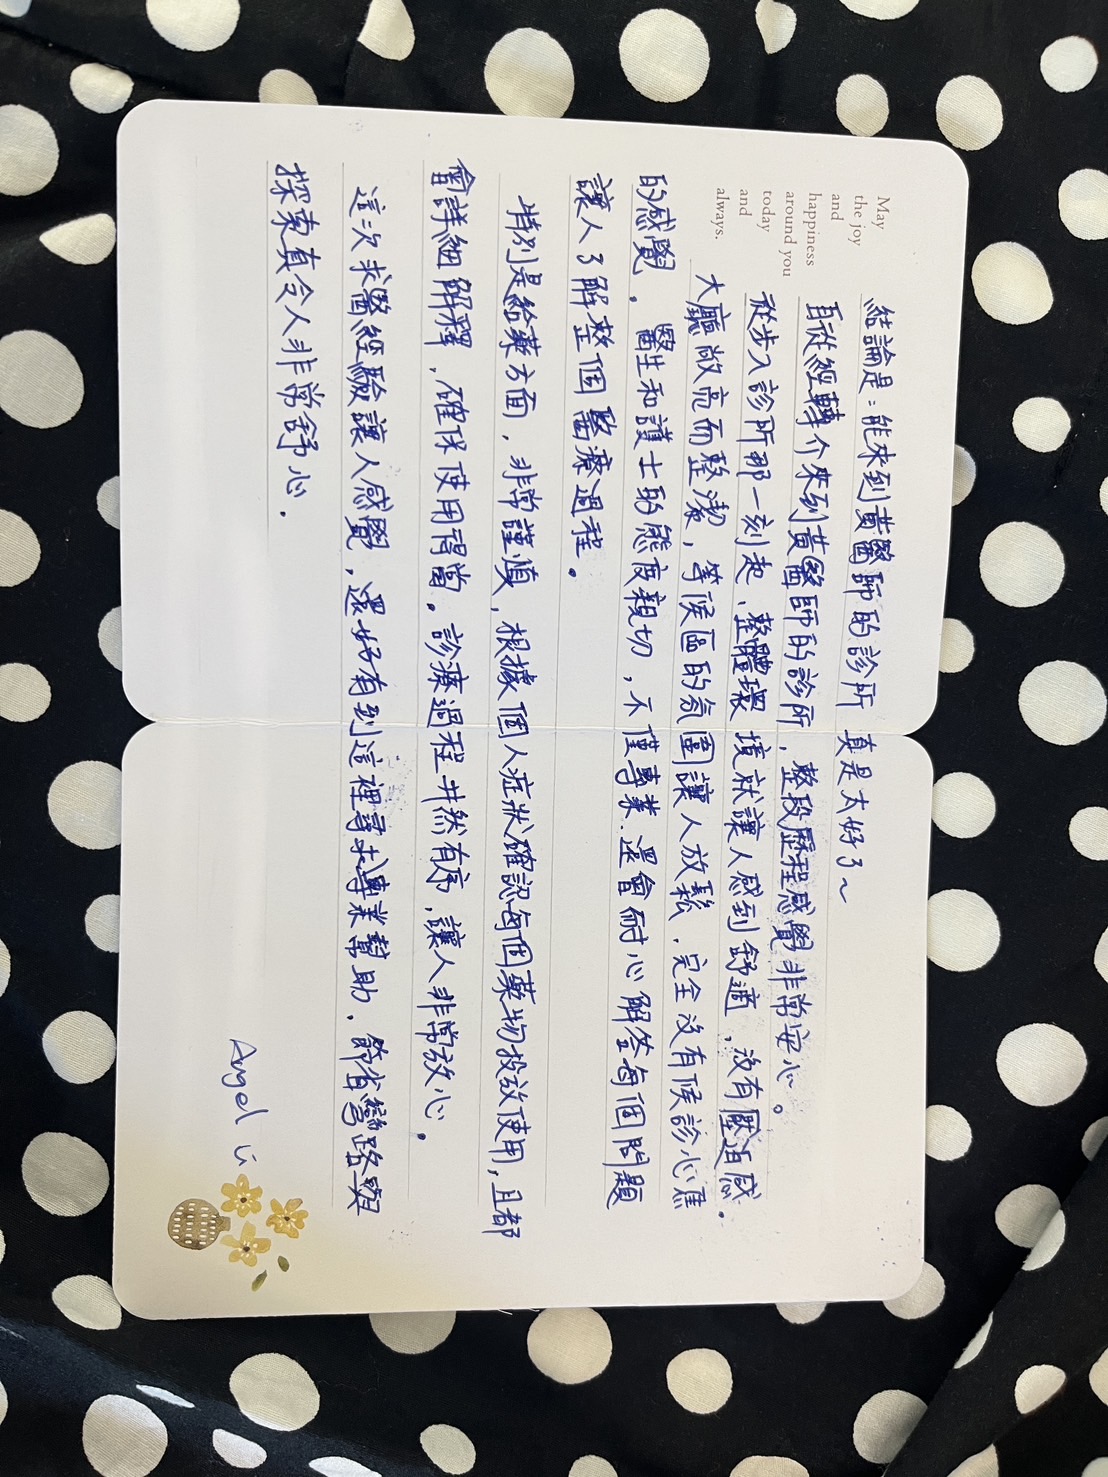 May
the joy
and
happiness
around you
today
and
always.
結論是：能來到黃醫師的診所 真是太好了～
自從經轉介來到黃醫師的診所，整段歷程感覺非常安心。
從步入診所那一刻起，整體環境就讓人感到舒適，沒有壓迫感。
大廳敞亮而整潔，等候區的氛圍讓人放鬆，完全沒有候診心焦
的感覺。 醫生和護士的態度親切，不僅專業、還會耐心解答每個問題
讓人了解整個醫療過程。
特別是給藥方面，非常謹慎，根據個人症狀確認每個藥物投放使用，且都
會詳細解釋，確保使用得當。診療過程井然有序，讓人非常放心。
這次求醫經驗讓人感覺，還好有到這裡尋求專業幫助，節省彎路與
探索真令人非常舒心。
Angel Li